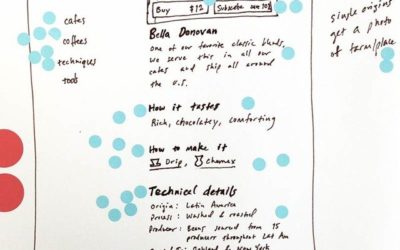 Buy $12 Subscribe
cafes
coffees
techniques
tools
Bella Donovan
one of our favorite classic blends,
we serve this in all our
cafes and ship all around
the U.S.
single origins
get a photo
of farm/place
How it tastes
Rich, chocolatey, comforting
How to make it
Drip, Chemex
Technical details
Origin: Latin America
Process: Washed & roasted
Producer: Beans sourced from 15
producers throughout Lat Am
Oakland & New York